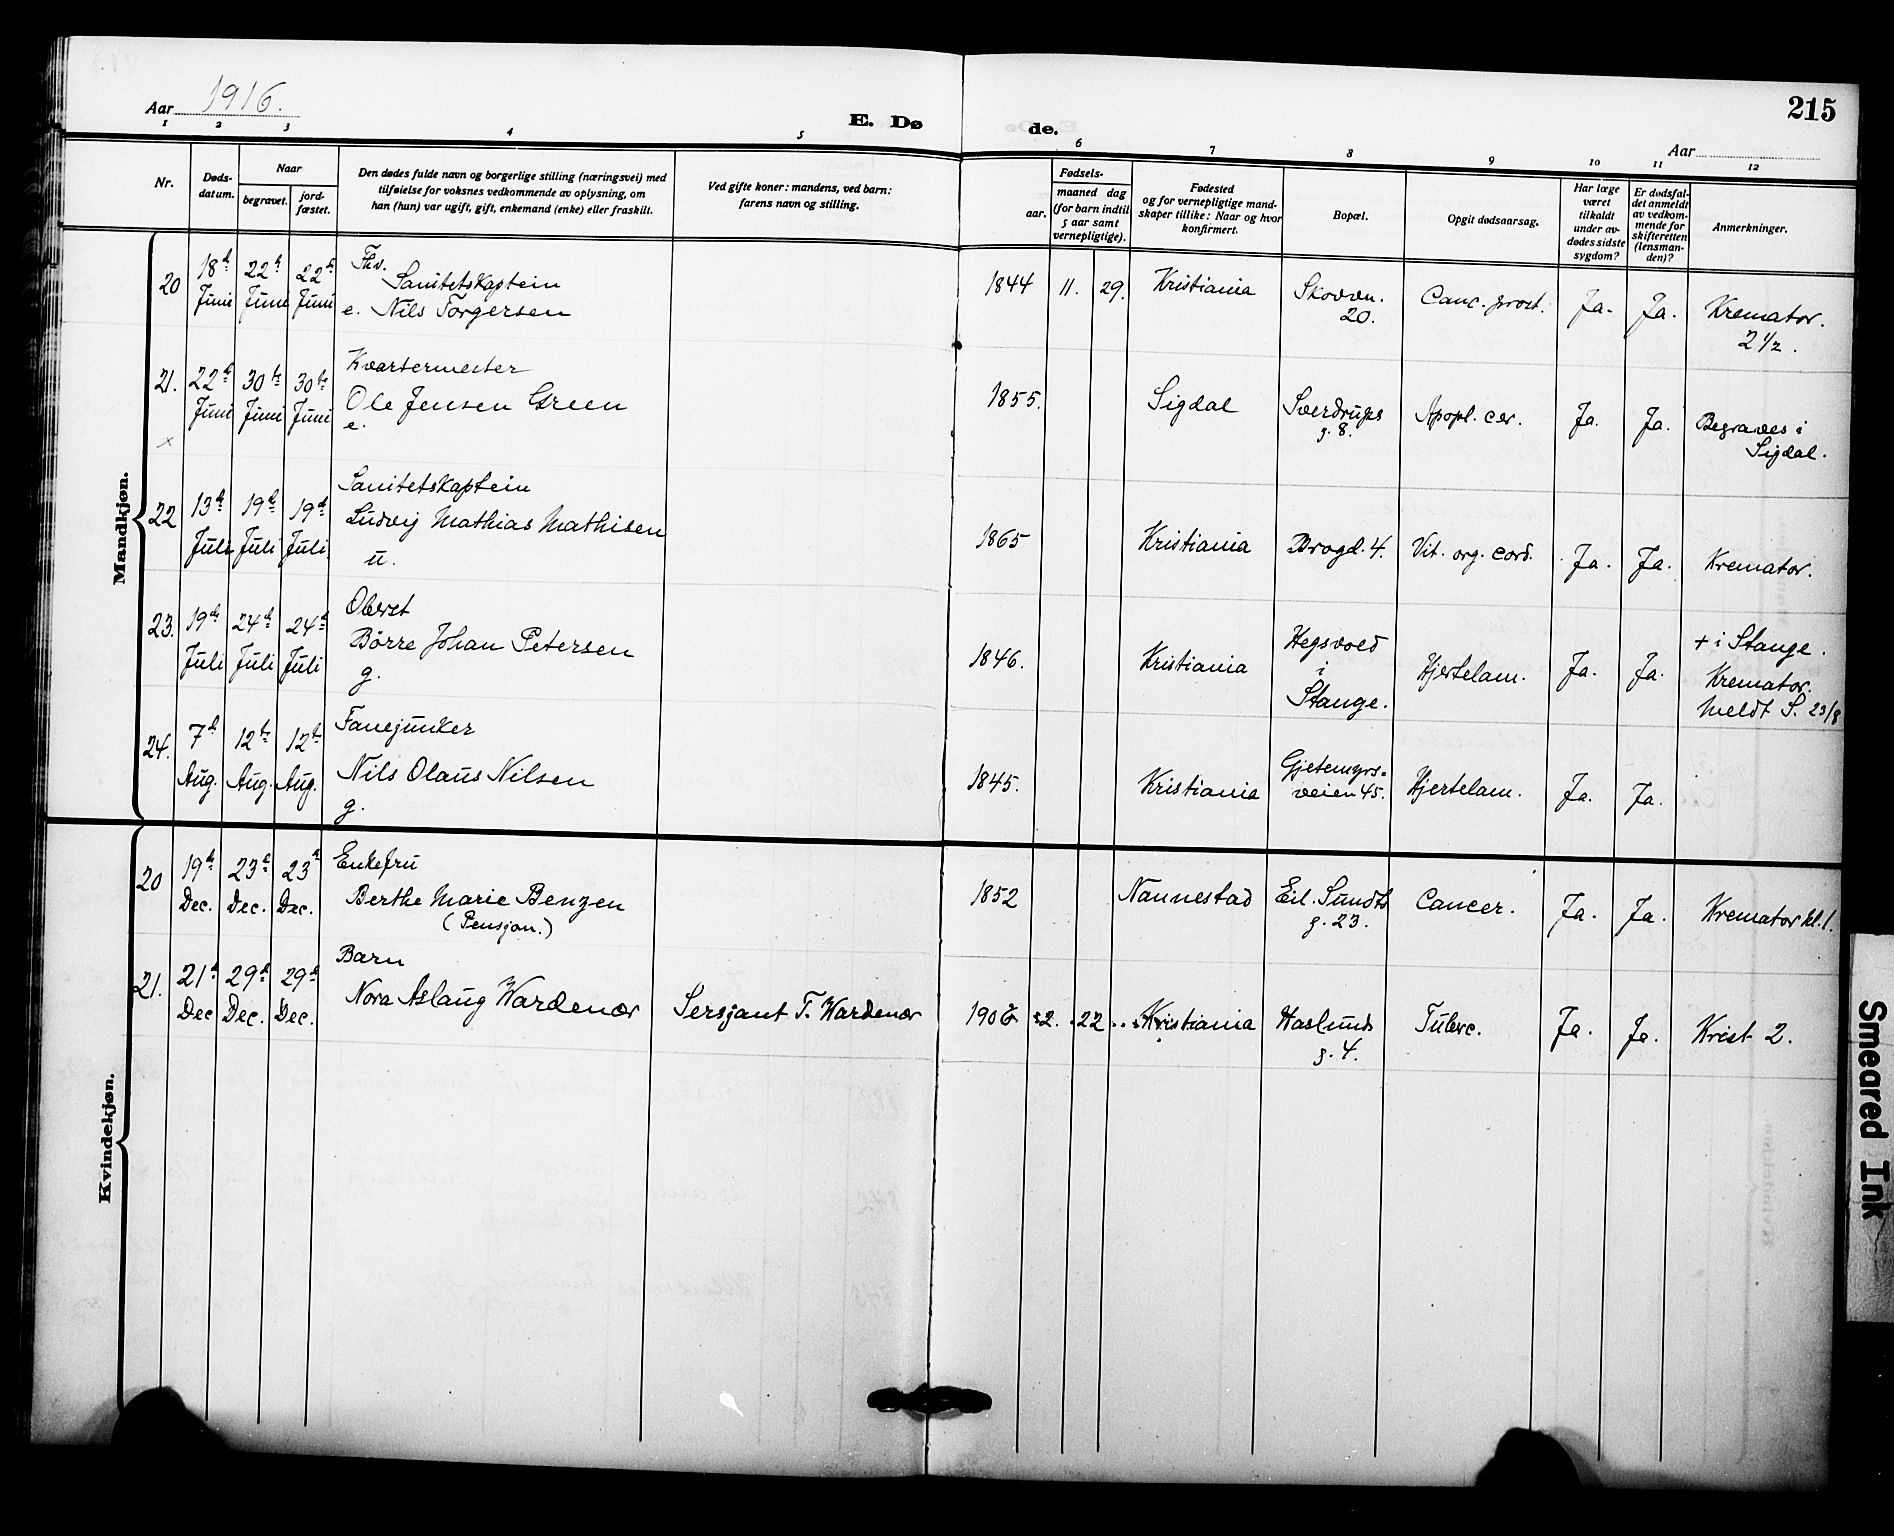 Aar 1916.
E. Dø
de.
Aar
215
1 2 3 4 5 6 7 8 9 10 11 12
Nr.
Døds-
datum.
Naar
begravet.
jord-
fæstet.
Den dødes fulde navn og borgerlige stilling (næringsvei) med
tilføielse for voksnes vedkommende av oplysning, om
han (hun) var ugift, gift, enkemand (enke) eller fraskilt.
Ved gifte koner: mandens, ved barn:
farens navn og stilling.
Fødsels-
aar.
maaned dag
(for barn indtil
5 aar samt
vernepligtige).
Fødested
og for vernepligtige mand-
skaper tillike: Naar og hvor
konfirmert.
Bopæl.
Opgit dødsaarsag.
Har læge
været
tilkaldt
under av-
dødes sidste
sygdom?
Er dødsfal-
det anmeldt
av vedkom-
mende for
skifteretten
(lensman-
den)?
Anmerkninger.
Mandkjøn.
20 18d Juni 22d Juni 22d Juni
Fhv.
Sanitetskaptein
e. Nils Torgersen
1844 11. 29. Kristiania
Skovvn.
20.
Canc. prost. Ja. Ja.
Kremator.
2 1/2.
21. 22d Juni 30te Juni 30te Juni
Kvartermester
Ole Jensen Green
e.
1855. Sigdal
Sverdrups
g. 8.
Apopl. cer. Ja. Ja.
Begraves i
Sigdal.
×
22 13d Juli 19d Juli 19d Juli
Sanitetskaptein
Ludvig Mathias Mathisen
u.
1865 Kristiania Brogd. 4. Vit. org. cord. Ja. Ja. Kremator.
23. 19d Juli 24d Juli 24d Juli
Oberst
Börre Johan Petersen
g.
1846. Kristiania
Hegsvold
i
Stange.
Hjertelam. Ja. Ja.
+ i Stange.
Kremator.
Meldt S. 23/8
24. 7d Aug. 12te Aug. 12te Aug.
Fanejunker
Nils Olaus Nilsen
g.
1845. Kristiania
Gjetemyrs-
veien 45.
Hjertelam. Ja. Ja.
Kvindekjøn.
20 19d Dec. 23d Dec. 23d Dec.
Enkefru
Berthe Marie Benzen
(Pensjon.)
1852 Nannestad
Eil. Sundts
g. 23.
Cancer. Ja. Ja. Kremator kl. 1.
21. 21d Dec 29d Dec. 29d Dec.
Barn
Nora Aslaug Wardenær Sersjant T. Wardenær
22 Kristiania
Haslunds
g. 4.
Tuberc. Ja. Ja. Krist 2.
Smeared Ink